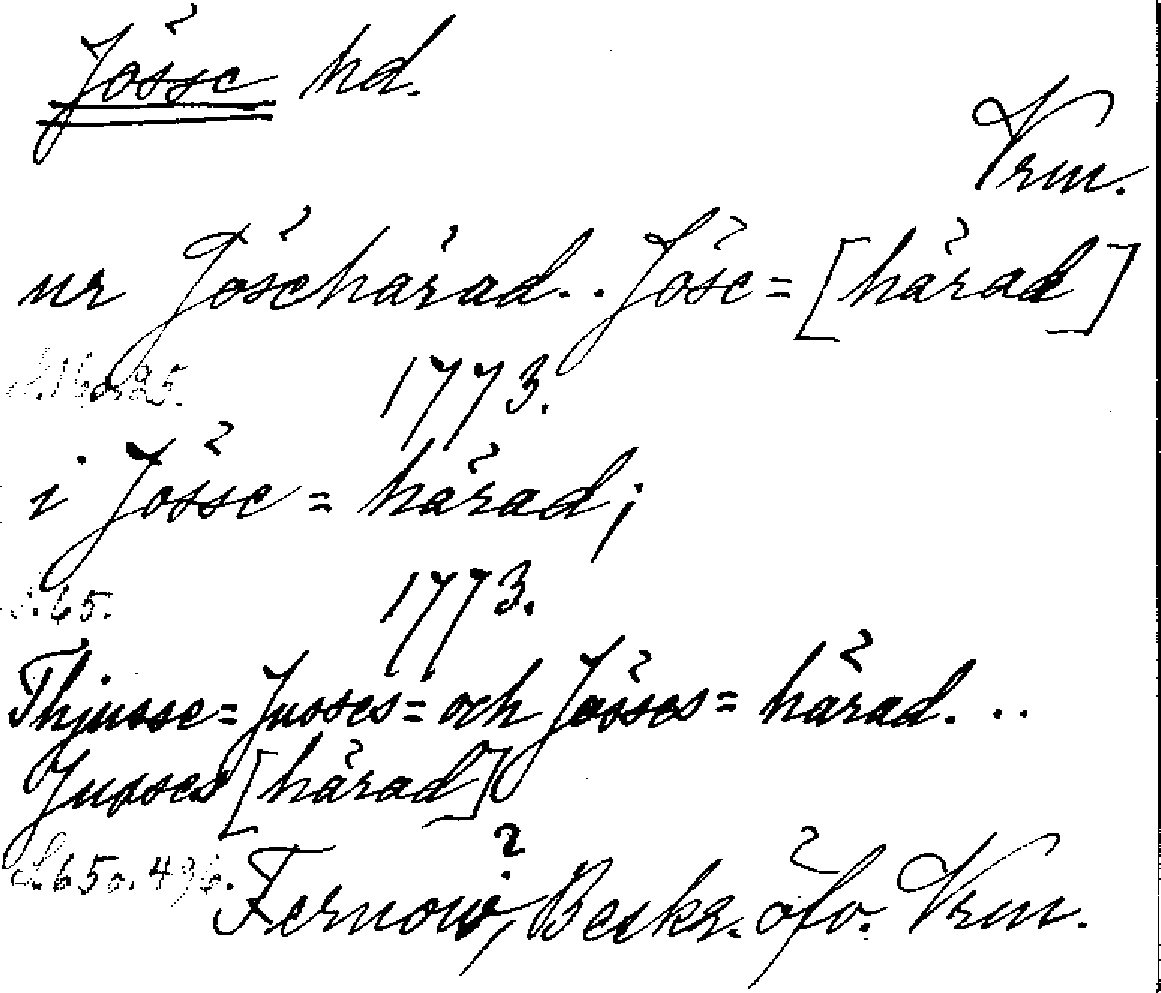 Jösse hd.
Vrm.
ur Jöschärad.. Jöse= [härad]
1773.
i Jösse= härad;
S. 65. 1773.
Thjusse= Jusses= och Jösses= härad...
Jusses [härad]
S. 65 o. 496. Fernow, Beskr. öfv. Vrm.